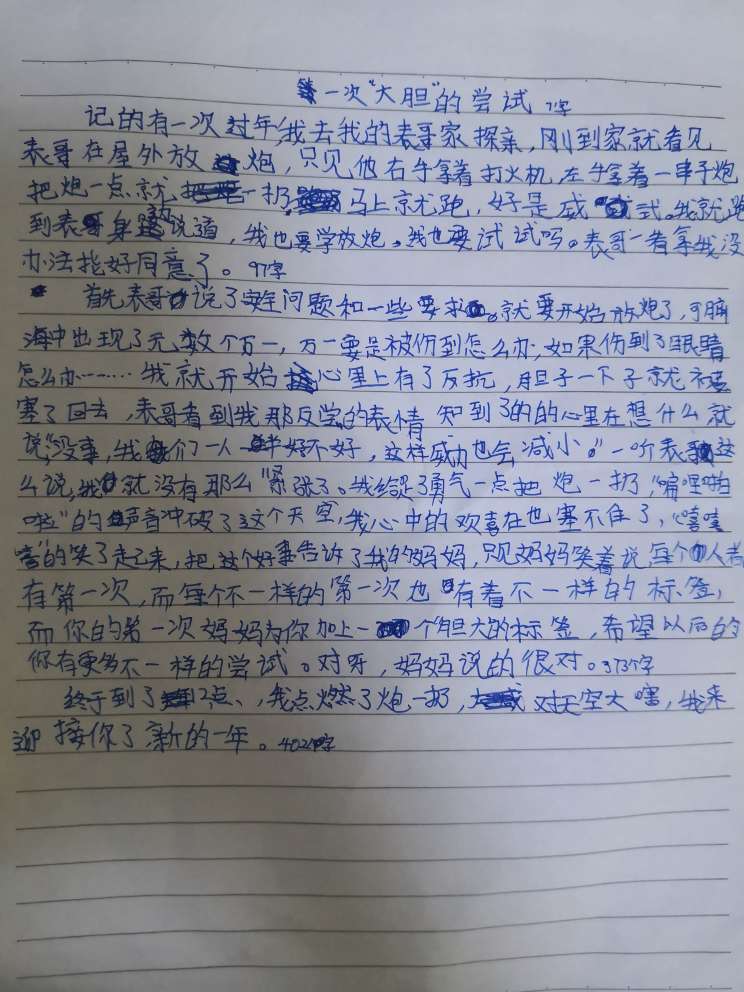 一次“大胆”的尝试 7字
记的有一次过年,我去我的表哥家探亲,刚到家就看见
表哥在屋外放炮,只见他右手拿着打火机,左手拿着一串子炮
把炮一点就一扔马上就跑,好是威式。我就跑
到表哥身旁说道,我也要学放炮。我也要试试吗。表哥一看拿我没
办法指好同意了。97字
首先表哥说了安全问题和一些要求。就要开始放炮了,可脑
海中出现了无数个万一,万一要是被伤到怎么办,如果伤到了眼睛
怎么办………我就开始心里上有了反抗,胆子一下子就被
塞了回去,表哥看到我那反学的表情 知到了的的心里在想什么就
说,“没事,我们一人一半好不好,这样威力也会减小。”一听表哥这
么说,我就没有那么“紧张了。我给足了勇气一点把炮一扔,“啪哩啪
啦”的声音冲破了这个天空,我心中的欢喜在也塞不住了,“嘻嘻
嘻”的笑了起来,把这个好事告诉了我的妈妈,只见妈妈笑着说,每个人者
有第一次,而每个不一样的第一次也有着不一样的标签,
而你的第一次妈妈为你加上一个胆大的标签,希望以后的
你有更多不一样的尝试。对牙,妈妈说的很对。373字
终于到了12点、,我点燃了炮一扔,对天空大喧,我来
迎接你了新的一年。402个字